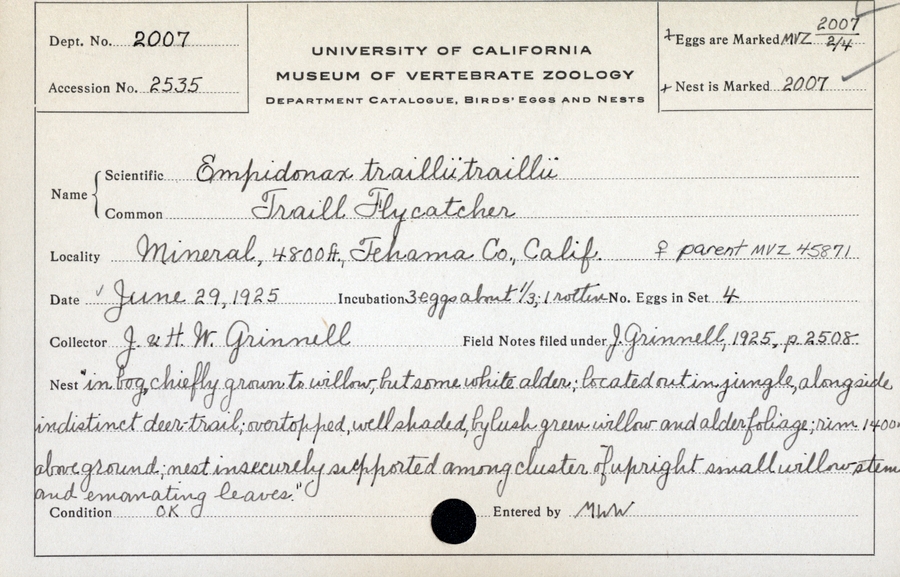 Dept. No. 2007
Accession No. 2535
UNIVERSITY OF CALIFORNIA
MUSEUM OF VERTEBRATE ZOOLOGY
DEPARTMENT CATALOGUE, BIRDS' EGGS AND NESTS
+ Eggs are Marked MVZ 2007 2/4
+ Nest is Marked 2007
Name { Scientific Empidonax traillii traillii
Common Traill Flycatcher
Locality Mineral, 4800 ft., Tehama Co., Calif. ♀ parent MVZ 45871
Date ✓ June 29, 1925 Incubation 3 eggs about 1/3; 1 rotten No. Eggs in Set 4
Collector J. & H. W. Grinnell Field Notes filed under J. Grinnell, 1925, p. 2508.
Nest "in bog, chiefly grown to willow, but some white alder; located out in jungle, alongside
indistinct deer-trail; overtopped, well shaded, by lush green willow and alder foliage; rim 1400
above ground; nest insecurely supported among cluster of upright small willow stem
and emanating leaves."
Condition OK Entered by MWW